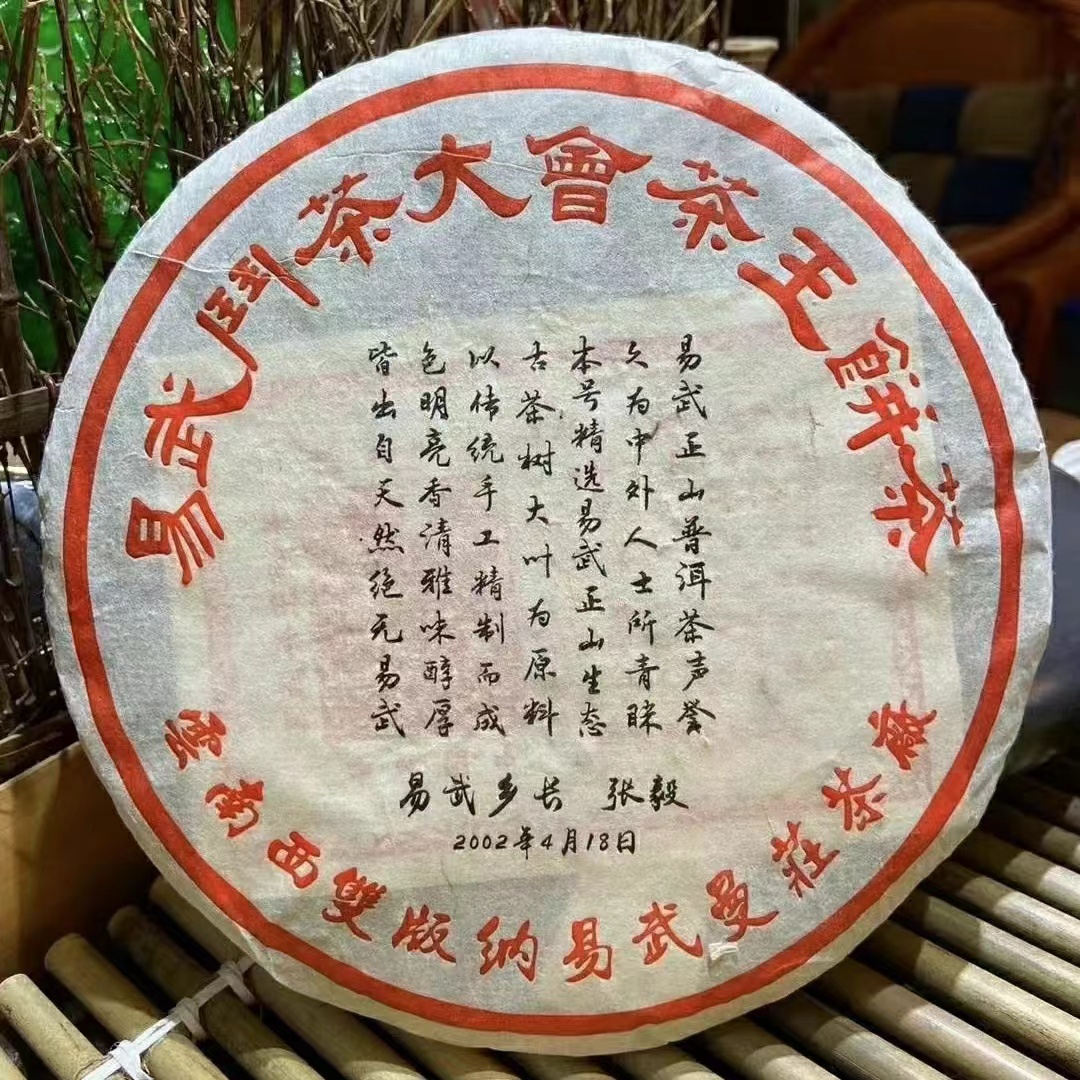 易武鬥茶大會茶王餅茶
易武正山普洱茶声誉
久为中外人士所青睐
本号精选易武正山生态
古茶树大叶为原料
以传统手工精制而成
色明亮香清雅味醇厚
皆出自天然绝无易武
易武乡长 张毅
2002年4月18日
雲南西雙版納易武曼莊